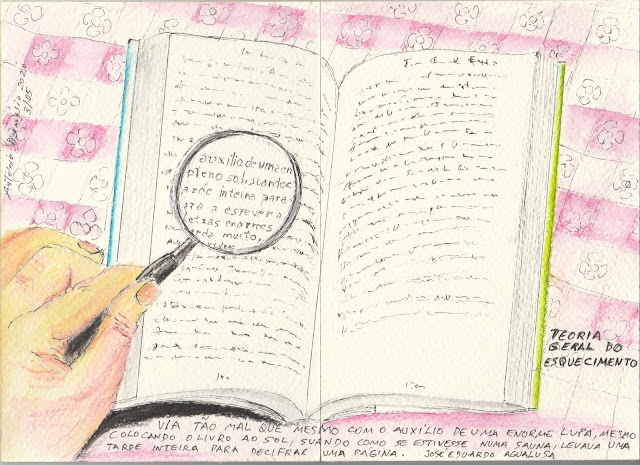 ANTÓNIO 2020
auxílio de uma en
pleno sol, suandoc
arde inteira para
ara a estrever a
etras enormes
rda muito,
TEORIA
GERAL DO
ESQUECIMENTO
VIA TÃO MAL QUE MESMO COM O AUXÍLIO DE UMA ENORME LUPA, MESMO
COLOCANDO O LIVRO AO SOL, SUANDO COMO SE ESTIVESSE NUMA SAUNA, LEVAVA UMA
TARDE INTEIRA PARA DECIFRAR UMA PÁGINA. JOSÉ EDUARDO AGUALUSA